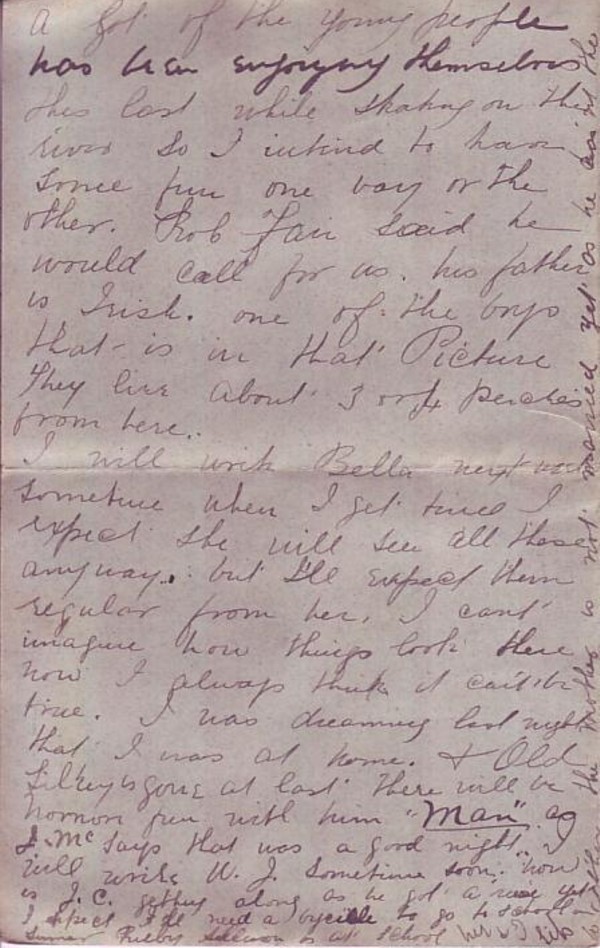 a lot of the young people
has been enjoying themselves
this last while skating on the
river so I intend to have
some fun one way or the
other. Rob Fair said he
would call for us. his father
is Irish. one of the boys
that is in that Picture
They live about 3 or 4 perches
from here.
I will write Bella next
sometime when I get time I
expect she will see all these
anyway. but I'll expect them
regular from her. I cant
imagine how things look there
now I always think it can't be
true. I was dreaming last night
that I was at home. & Old
is gone at last there will be
fun with him "Man" as
J. Mc says that was a good night. I
will write W. J. sometime soon. how
is J. C. getting along as he got a yet
I expect I'll need a bycille to go to school in
summer is at school
the mother is not married yet as he ain't the